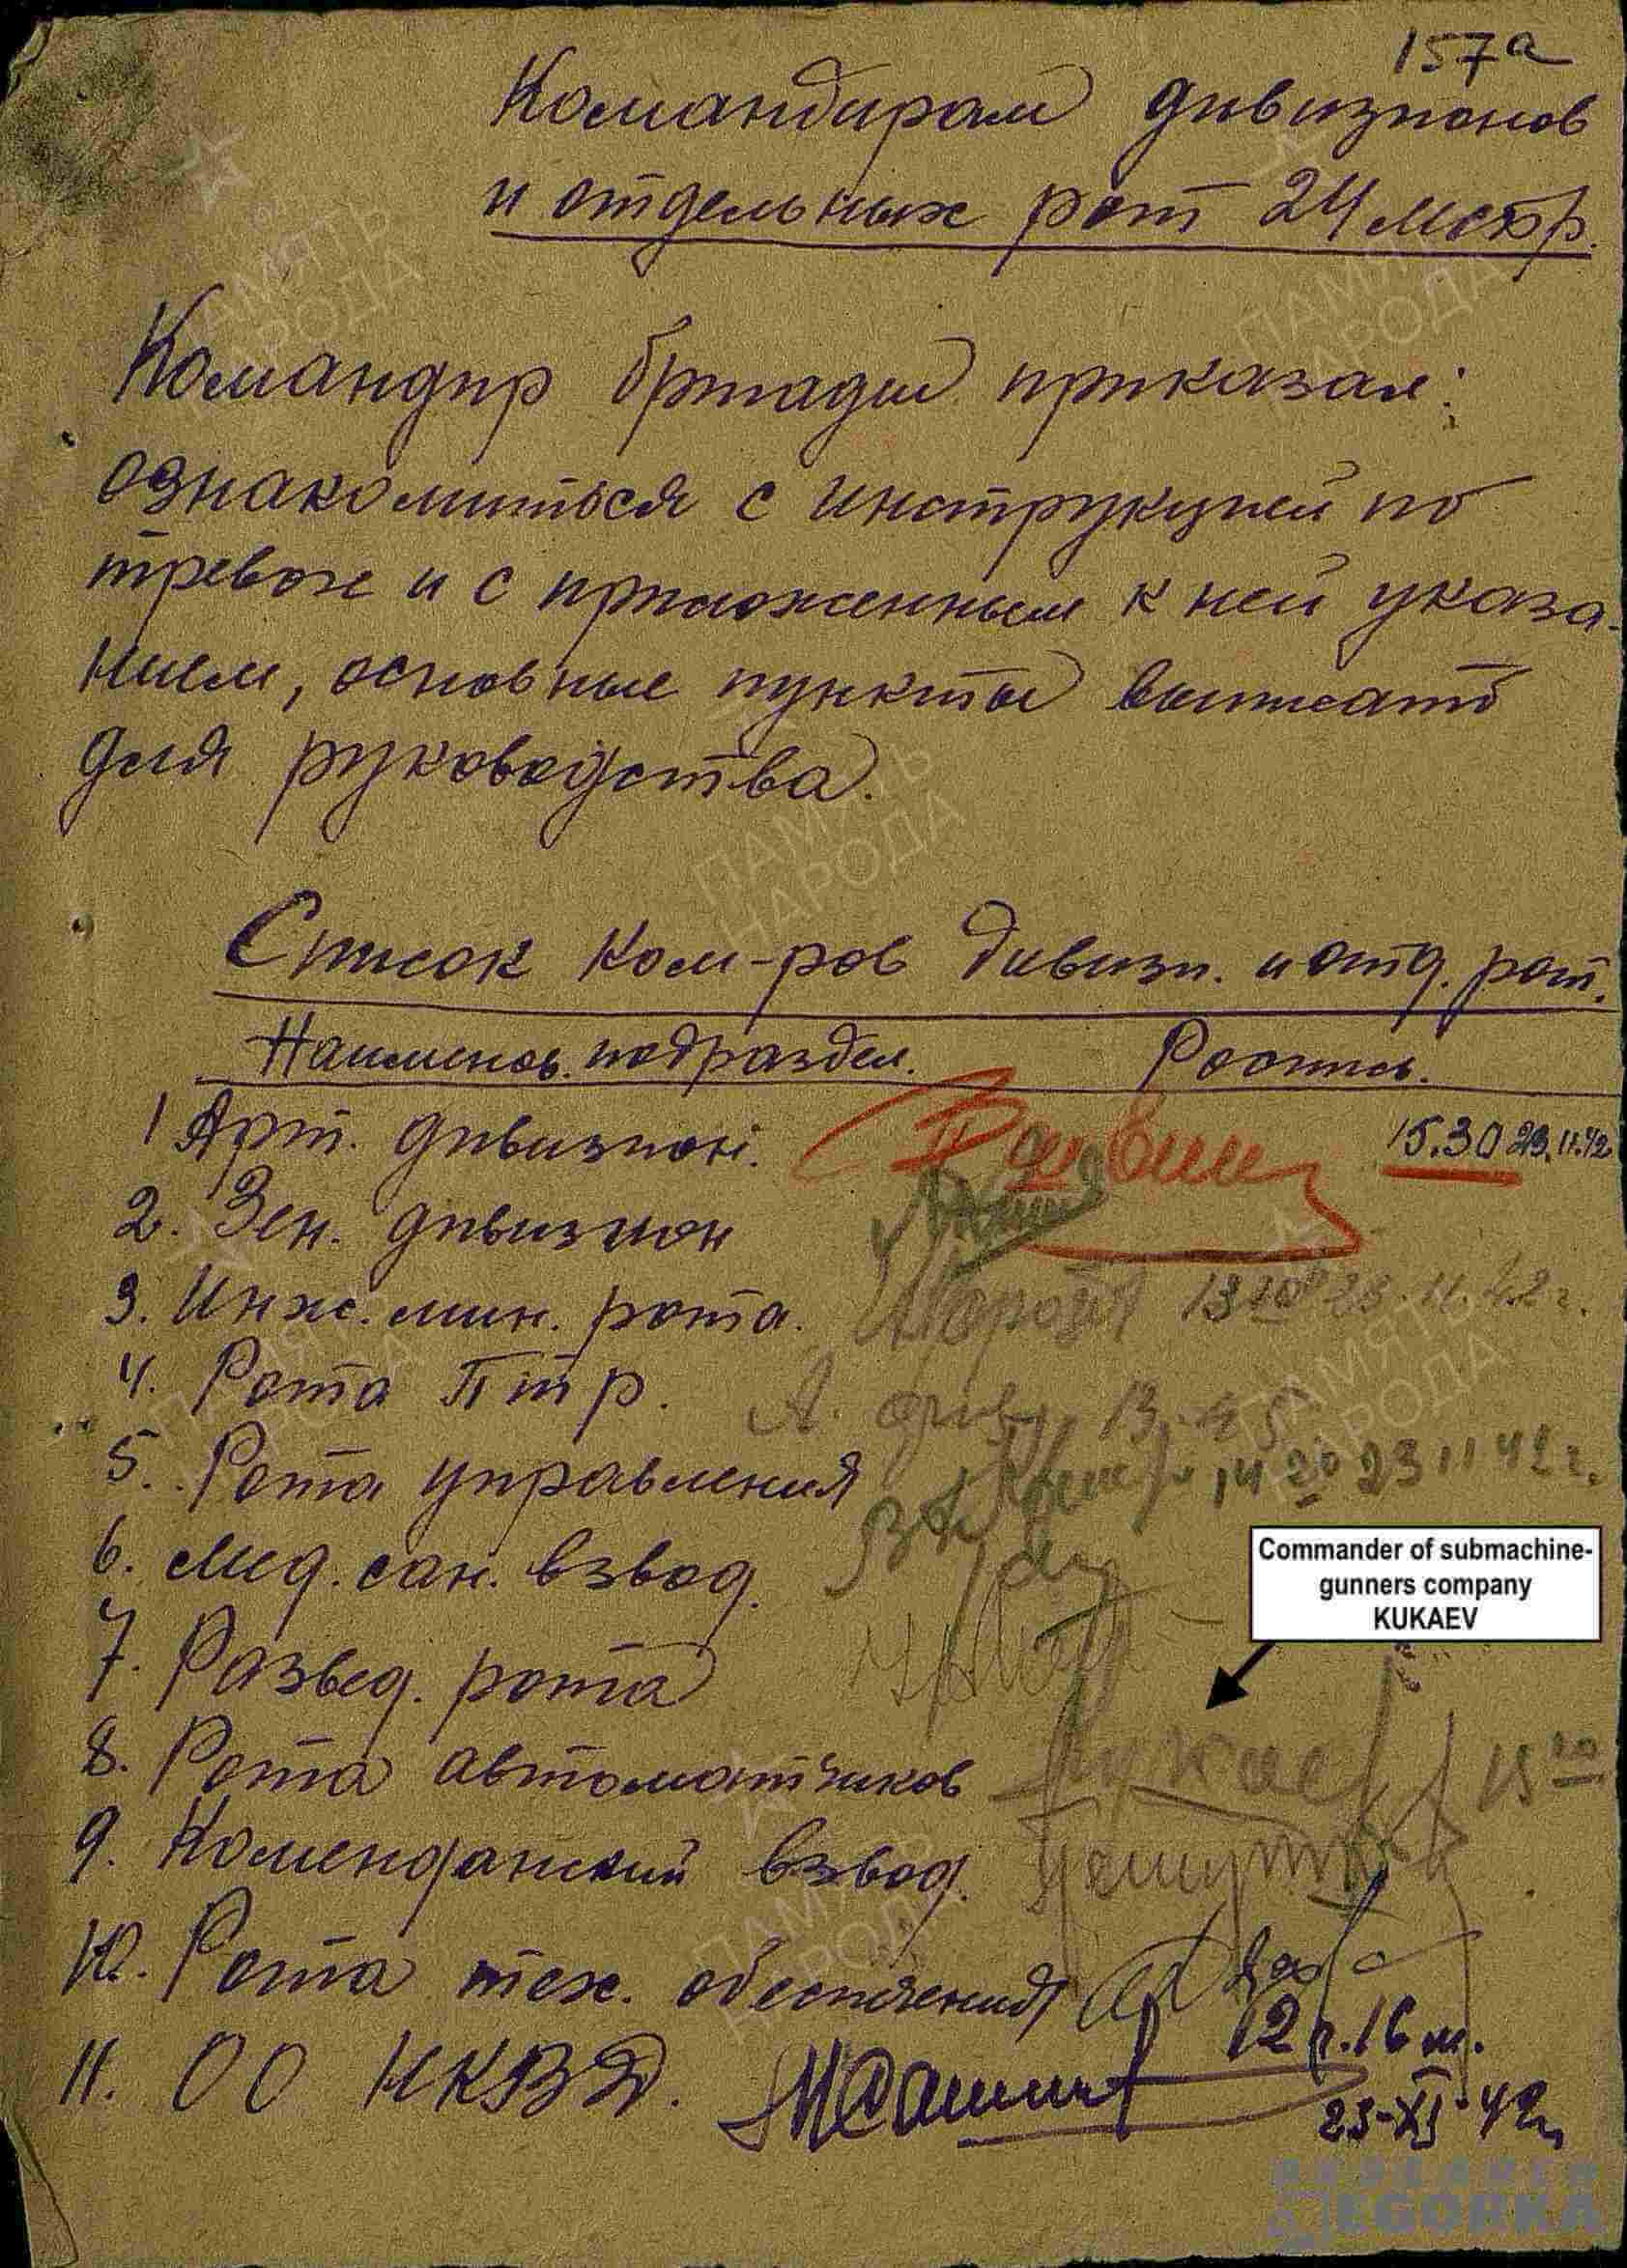 157а
Командирам дивизионов
и отдельных рот 24 мсбр.
Командир бригады приказал:
ознакомиться с инструкцией по
тревоге и с приложенным к ней указа-
нием, основные пункты выписать
для руководства.
Список ком-ров дивизн. и отд. рот.
Наименов. подраздел. Роспись.
1 Арт. дивизион. 15.30 23.11.42
2. Зен. дивизион
3. Инж. мин. рота. 13 10 23.11.42г.
4. Рота Птр. 13.45
5. Рота управления 14 20 23 11 42г.
6. Мед. сан. взвод.
Commander of submachine-
gunners company
KUKAEV
7. Развед. рота
8. Рота автоматчиков Кукаев 15 10
9. Комендантский взвод.
10. Рота тех. обеспечения
12 ч. 16 м.
11. ОО НКВД.
23-XI-42г.
ПАМЯТЬ
НАРОДА
EGORKA